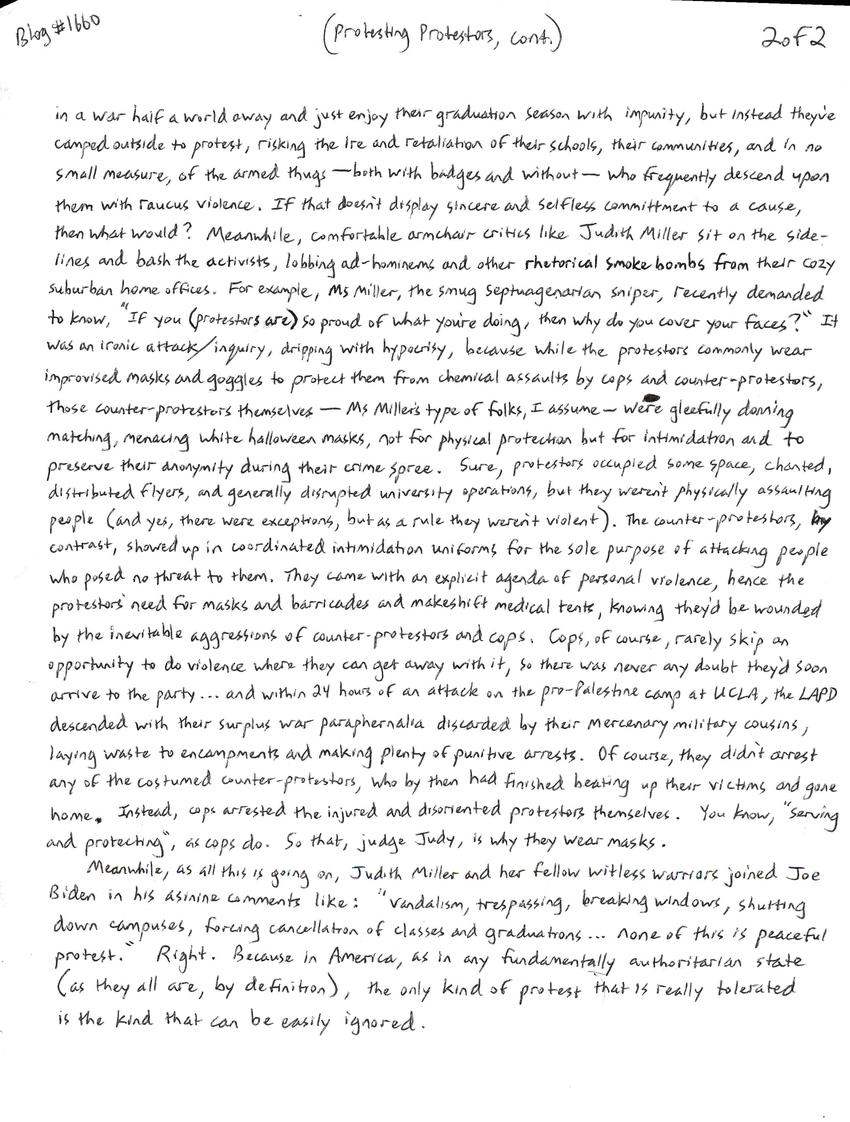 Blog #1660
(Protesting Protestors, cont.)
2 of 2
in a war half a world away and just enjoy their graduation season with impunity, but instead they've
camped outside to protest, risking the ire and retaliation of their schools, their communities, and in no
small measure, of the armed thugs — both with badges and without — who frequently descend upon
them with raucus violence. If that doesn't display sincere and selfless committment to a cause,
then what would? Meanwhile, comfortable armchair critics like Judith Miller sit on the side-
lines and bash the activists, lobbing ad-hominems and other rhetorical smoke bombs from their cozy
suburban home offices. For example, Ms Miller, the smug septuagenarian sniper, recently demanded
to know, "If you (protestors are) so proud of what you're doing, then why do you cover your faces?" It
was an ironic attack/inquiry, dripping with hypocrisy, because while the protestors commonly wear
improvised masks and goggles to protect them from chemical assaults by cops and counter-protestors,
those counter-protestors themselves — Ms Miller's type of folks, I assume — were gleefully donning
matching, menacing white halloween masks, not for physical protection but for intimidation and to
preserve their anonymity during their crime spree. Sure, protestors occupied some space, chanted,
distributed flyers, and generally disrupted university operations, but they weren't physically assaulting
people (and yes, there were exceptions, but as a rule they weren't violent). The counter-protestors, by
contrast, showed up in coordinated intimidation uniforms for the sole purpose of attacking people
who posed no threat to them. They came with an explicit agenda of personal violence, hence the
protestors' need for masks and barricades and makeshift medical tents, knowing they'd be wounded
by the inevitable aggressions of counter-protestors and cops. Cops, of course, rarely skip an
opportunity to do violence where they can get away with it, so there was never any doubt they'd soon
arrive to the party... and within 24 hours of an attack on the pro-Palestine camp at UCLA, the LAPD
descended with their surplus war paraphernalia discarded by their mercenary military cousins,
laying waste to encampments and making plenty of punitive arrests. Of course, they didn't arrest
any of the costumed counter-protestors, who by then had finished beating up their victims and gone
home. Instead, cops arrested the injured and disoriented protestors themselves. You know, "serving
and protecting", as cops do. So that, judge Judy, is why they wear masks.
Meanwhile, as all this is going on, Judith Miller and her fellow witless warriors joined Joe
Biden in his asinine comments like: "vandalism, trespassing, breaking windows, shutting
down campuses, forcing cancellation of classes and graduations... none of this is peaceful
protest." Right. Because in America, as in any fundamentally authoritarian state
(as they all are, by definition), the only kind of protest that is really tolerated
is the kind that can be easily ignored.